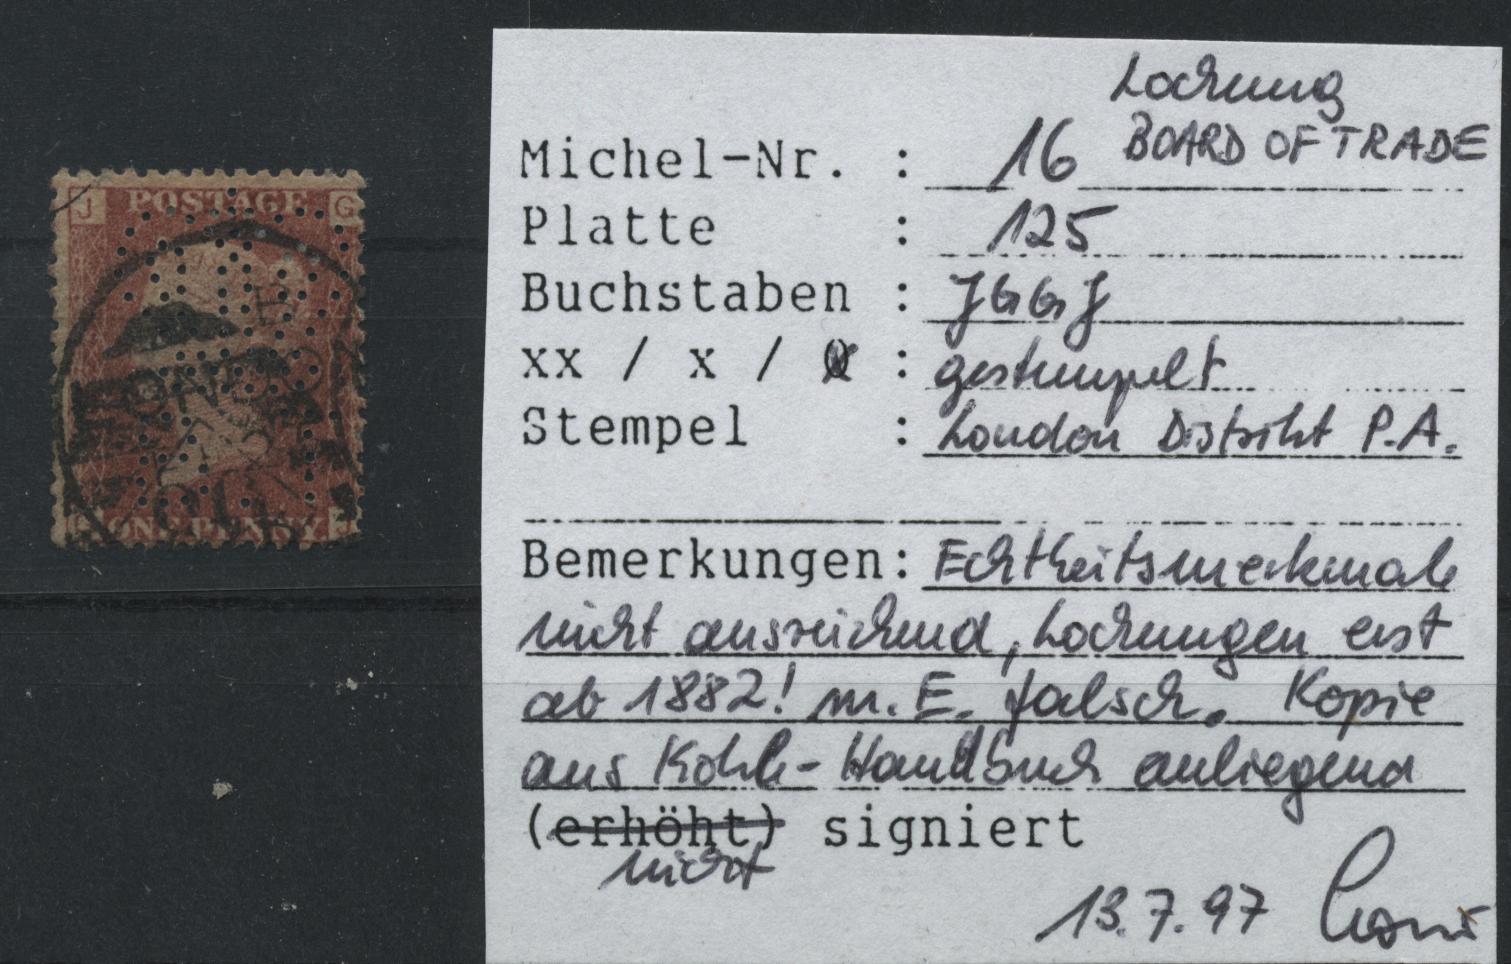 J POSTAGE G
E
LONDON
G ONE PENNY J
Lochung
Michel-Nr. : 16 BOARD OF TRADE
Platte : 125
Buchstaben : JGGJ
xx / x / 0 : gestempelt
Stempel : London Distrikt P.A.
Bemerkungen: Echtheitsmerkmale
nicht ausreichend, Lochungen erst
ab 1882! m. E. falsch. Kopie
aus Kohl-Handbuch anliegend
(erhöht) signiert
nicht
13.7.97